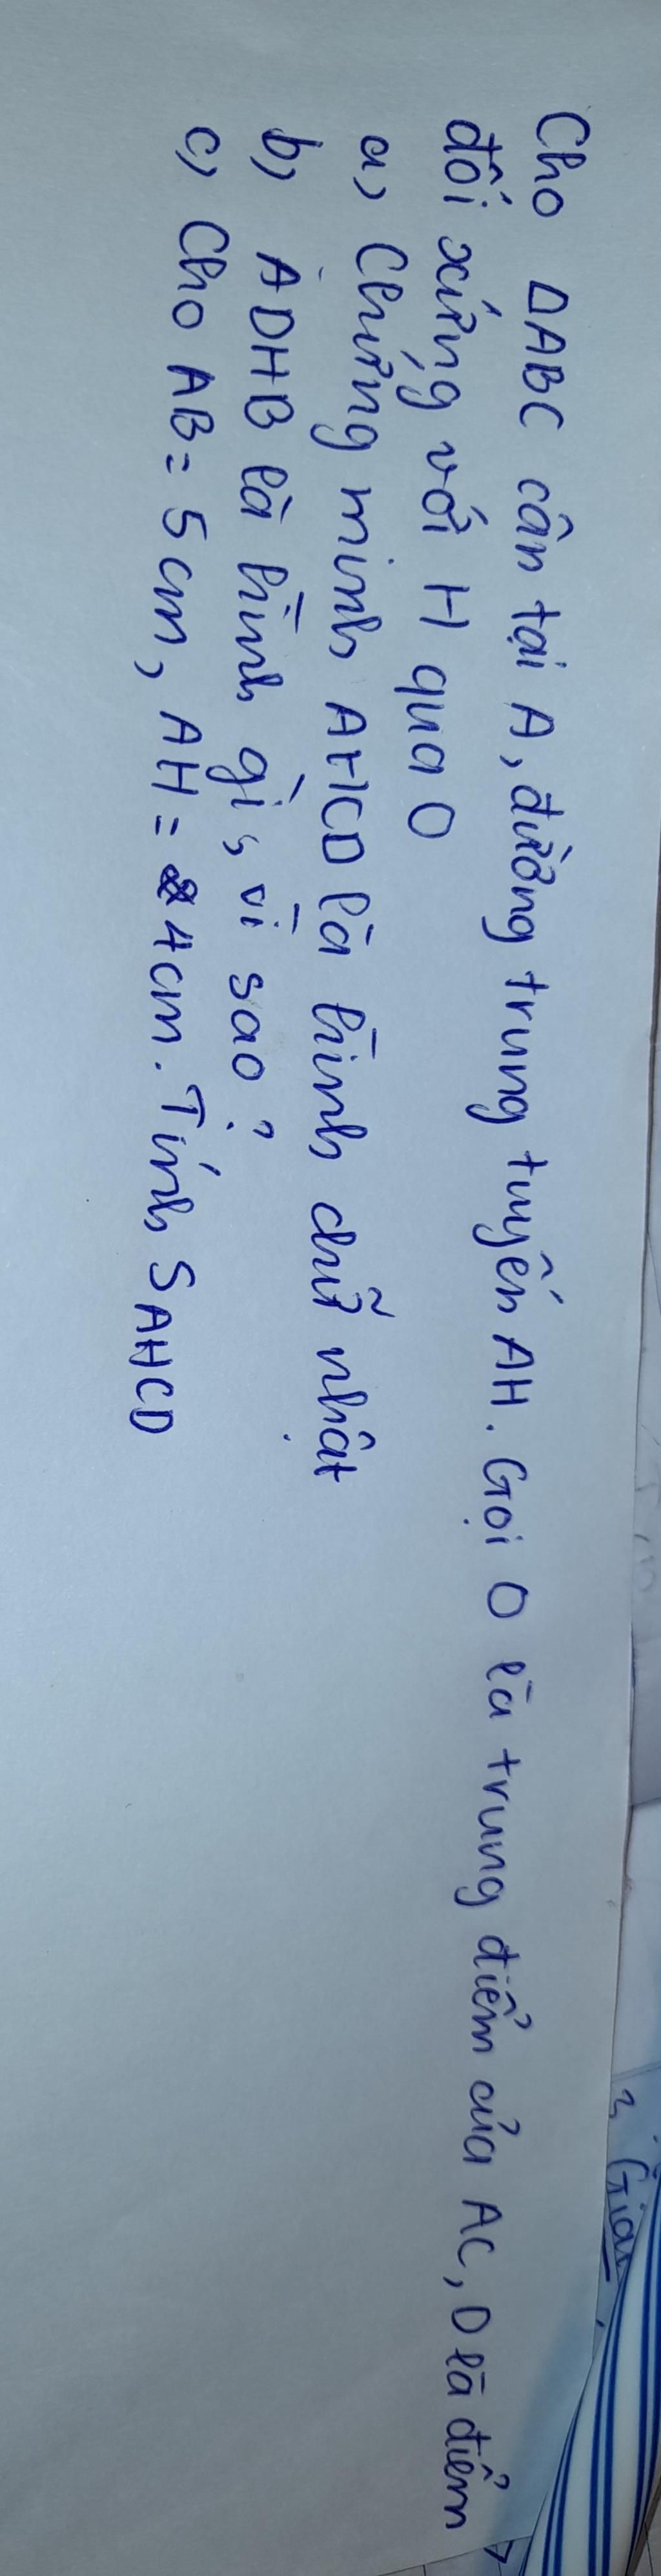 Cho ΔABC cân tại A, đường trung tuyến AH. Gọi O là trung điểm của AC, D là điểm
đối xứng với H qua O
a, Chứng minh AHCD là hình chữ nhật
b, ADHB là hình gì, vì sao?
c, Cho AB = 5cm, AH = 4cm. Tính SAHCD
Giải